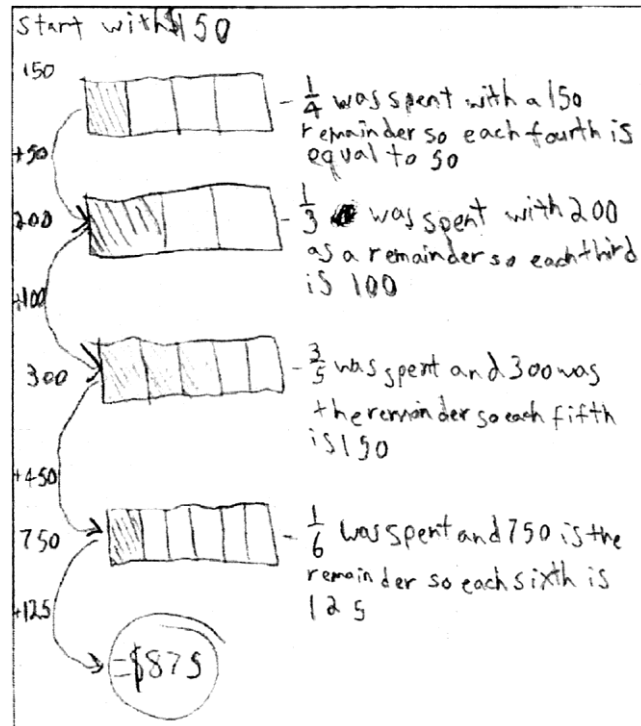 start with $150
150
1/4 was spent with a 150
remainder so each fourth is
equal to 50
+50
200
1/3 was spent with 200
as a remainder so each third
is 100
+100
300
3/5 was spent and 300 was
the remainder so each fifth
is 150
+450
750
1/6 was spent and 750 is the
remainder so each sixth is
125
+125
=$875